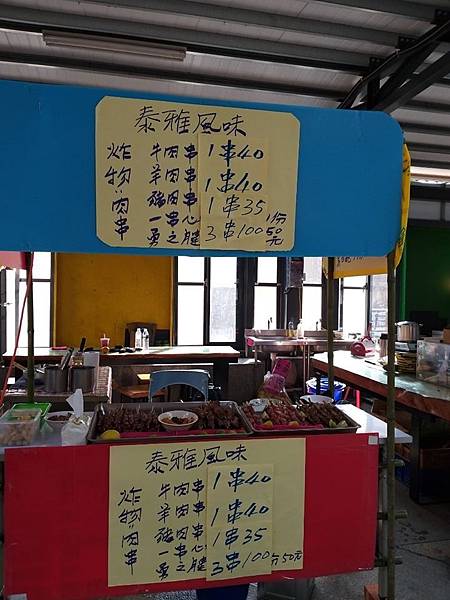 泰雅風味
炸物：肉串
牛肉串 1串40
羊肉串 1串40
豬肉串 1串35
一串心 3串100 1份50元
勇之腱
泰雅風味
炸物肉串
牛肉串 1串40
羊肉串 1串40
豬肉串 1串35
一串心 3串100 1份50元
勇之腱